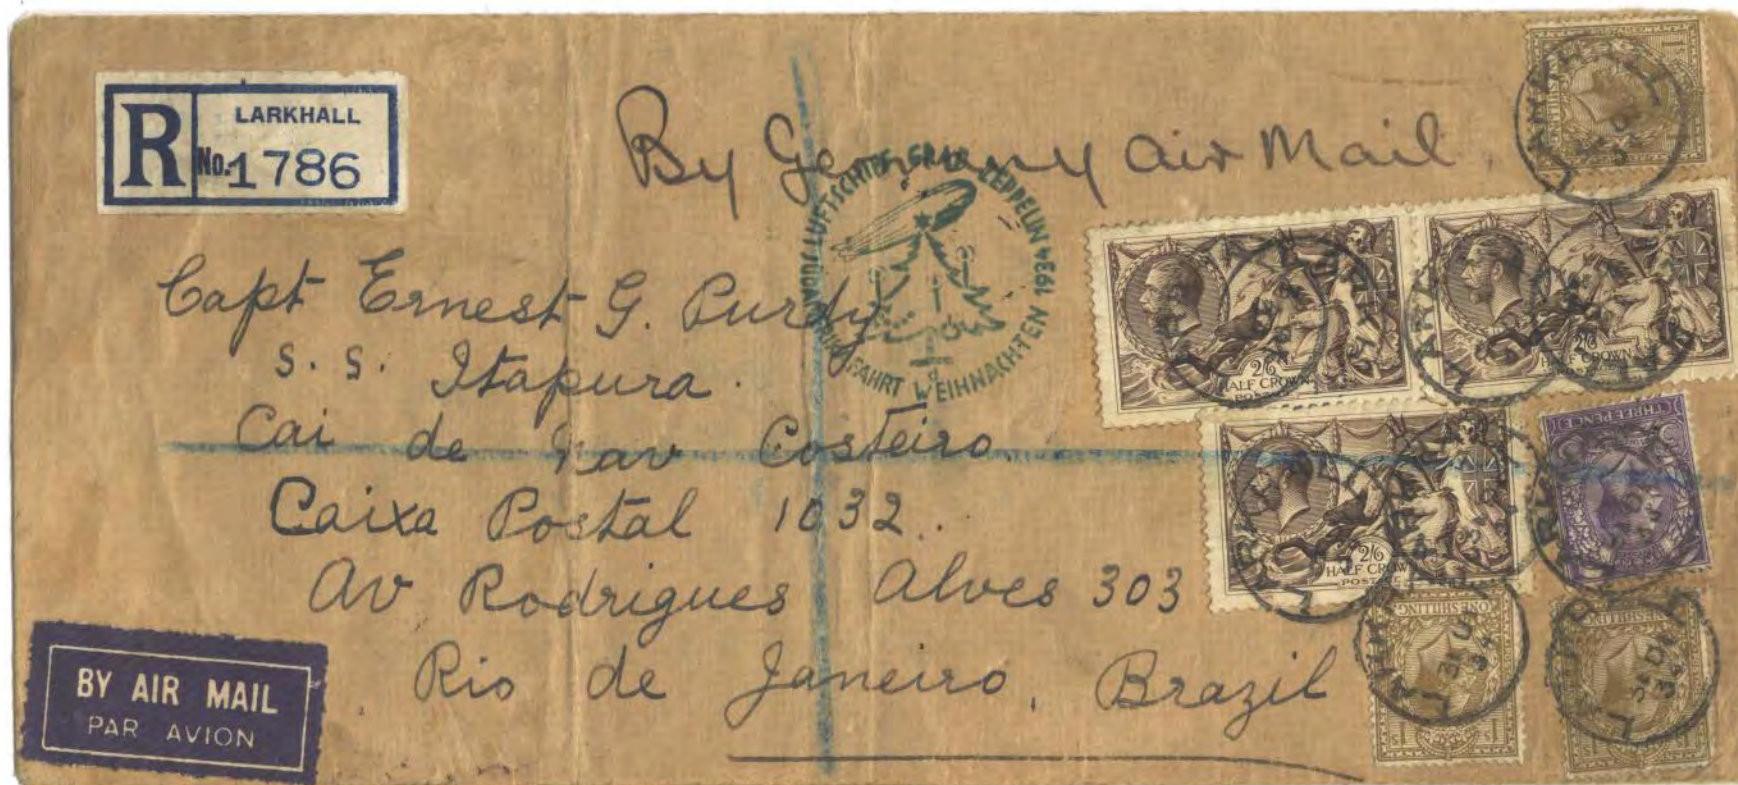 R LARKHALL
No. 1786
By Germany air Mail.
LUFTSCHIFF GRAF ZEPPELIN 1934
FAHRT WEIHNACHTEN
Capt Ernest G. Purdy
S. S. Itapura.
Cai de Nav Costeiro
Caixa Postal 1032.
Av Rodrigues Alves 303
Rio de Janeiro, Brazil
BY AIR MAIL
PAR AVION
2/6
HALF CROWN
POSTAGE
2/6
HALF CROWN
2/6
HALF CROWN
POSTAGE
THREE PENCE
ONE SHILLING
ONE SHILLING
LARKHALL